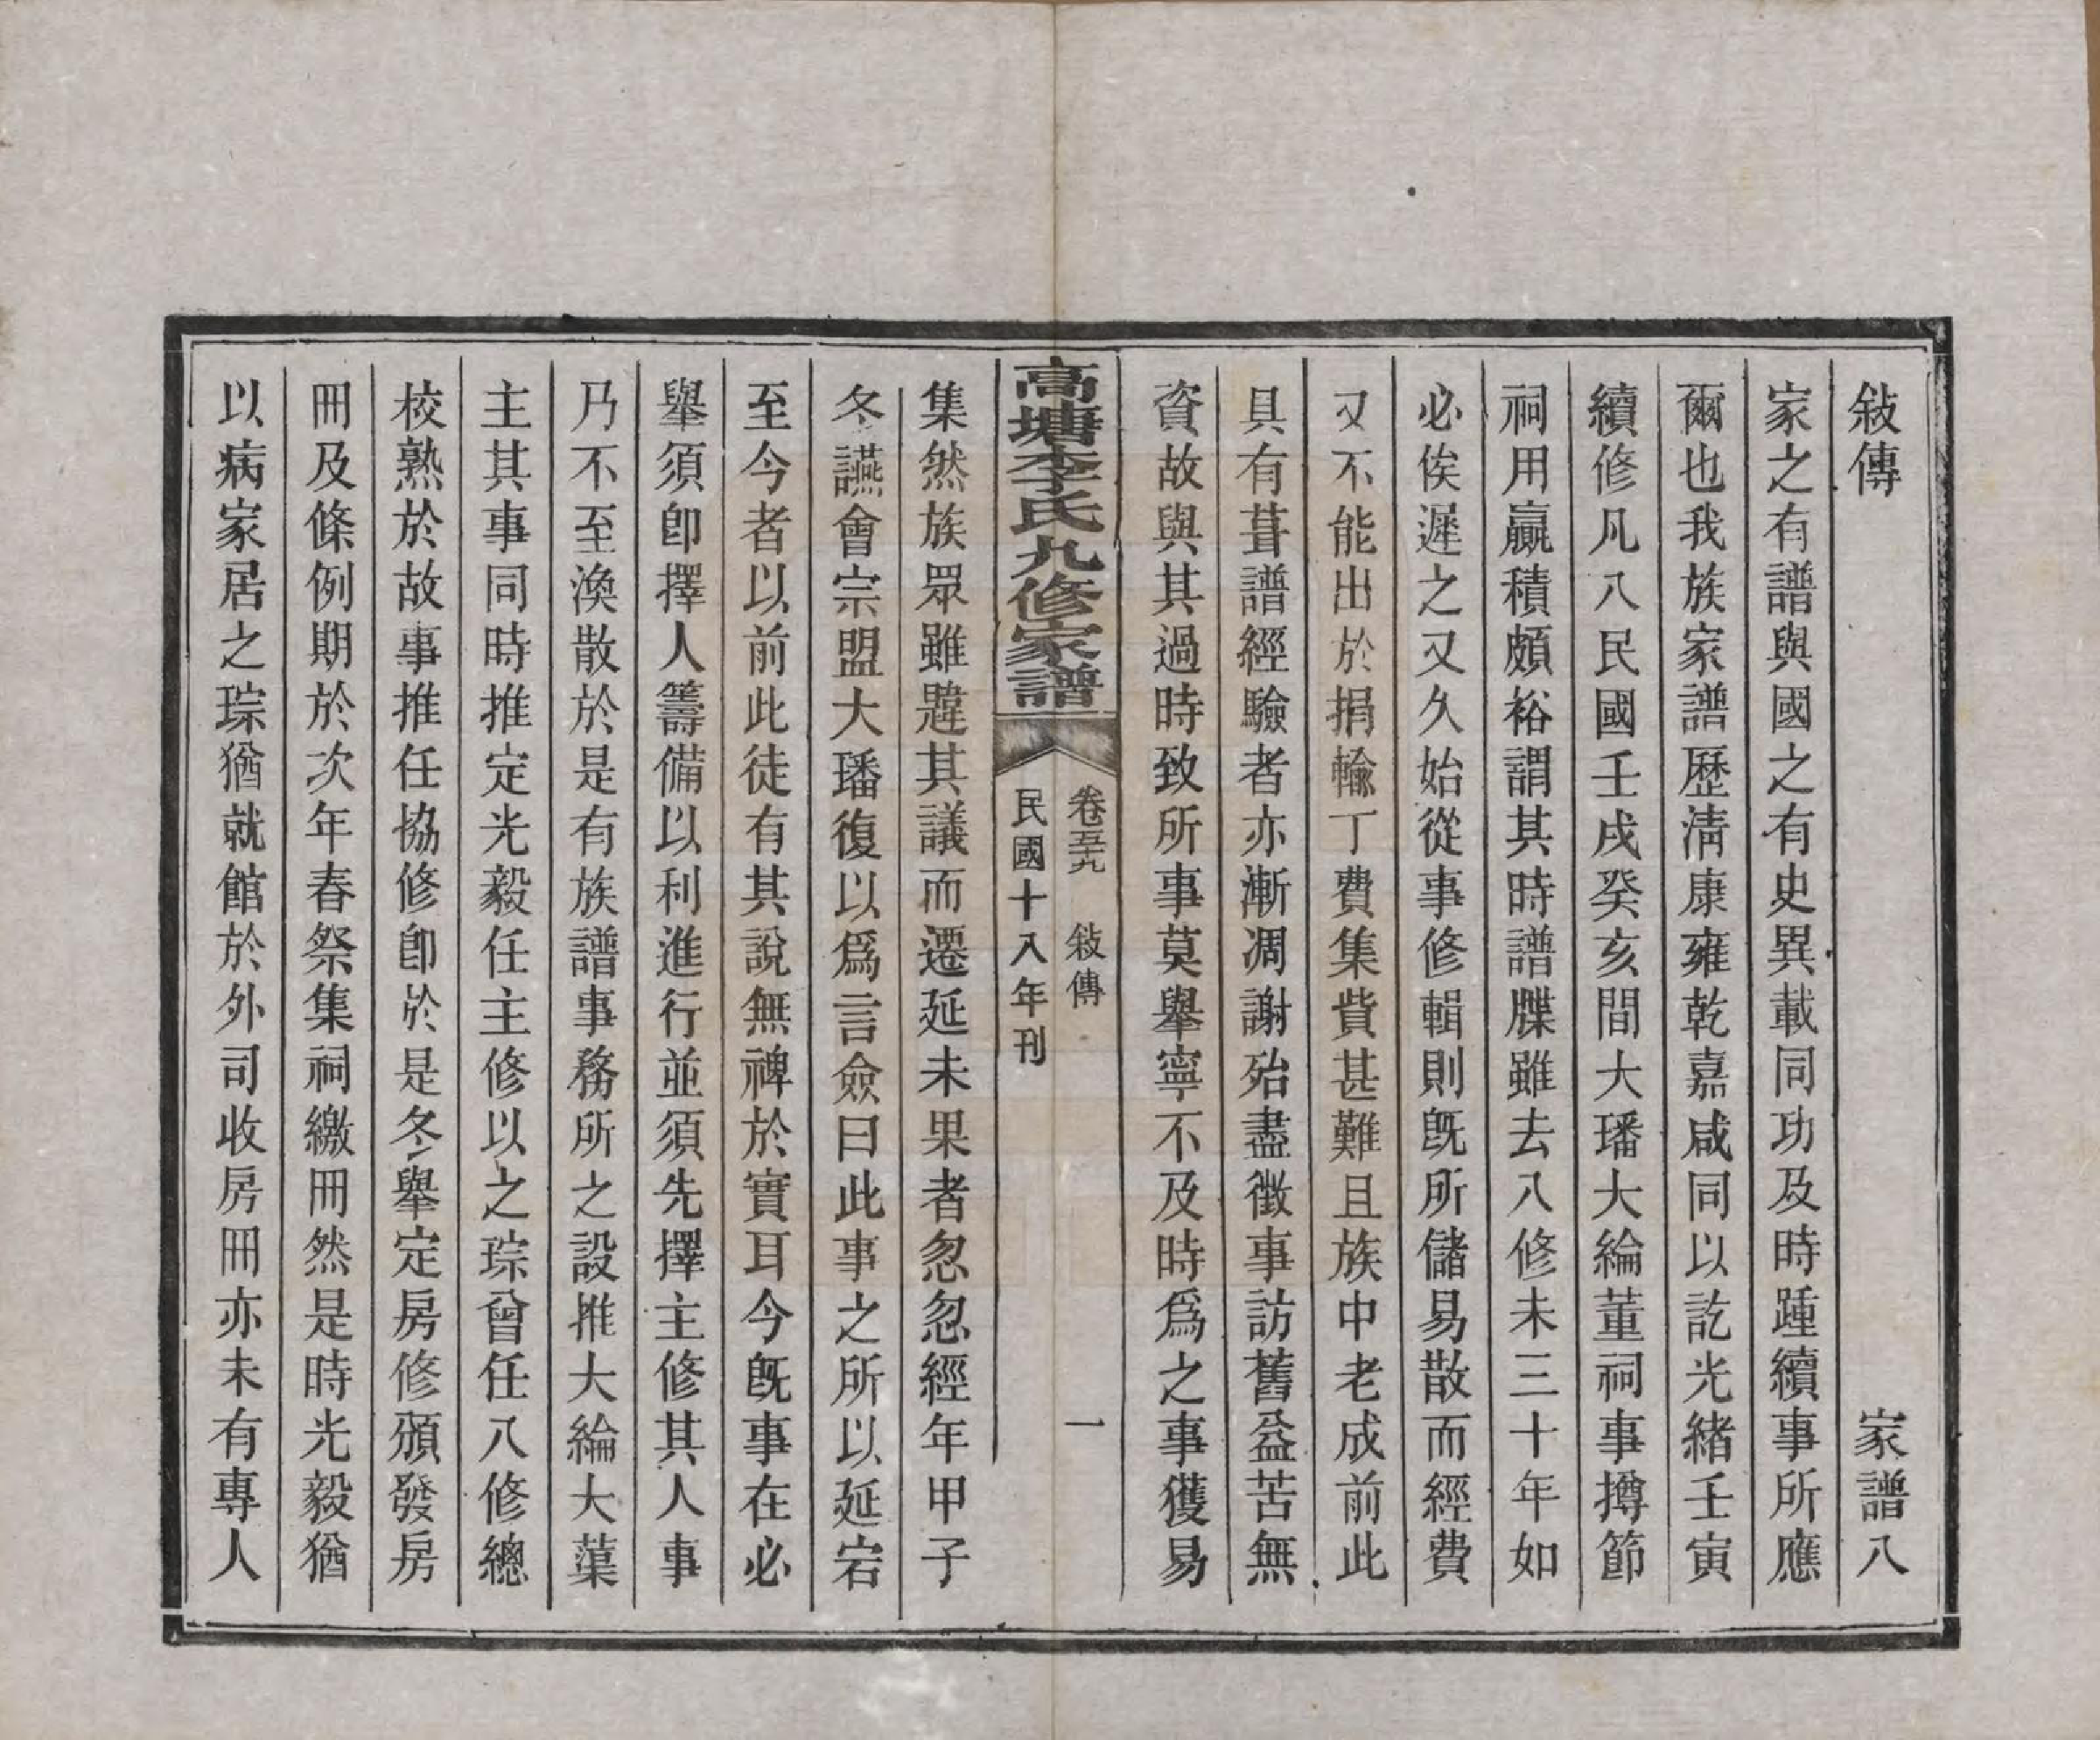 敍傳　家譜八
家之有譜與國之有史異載同功及時踵續事所應
爾也我族家譜歷淸康雍乾嘉咸同以訖光緖壬寅
續修凡八民國壬戌癸亥間大璠大綸董祠事撙節
祠用贏積頗裕謂其時譜牒雖去八修未三十年如
必俟遲之又久始從事修輯則旣所儲易散而經費
又不能出於捐輸丁費集貲甚難且族中老成前此
具有葺譜經驗者亦漸凋謝殆盡徵事訪舊益苦無
資故與其過時致所事莫舉寧不及時爲之事獲易
高塘李氏九修家譜
卷五十九　敍傳　一
民國十八年刊
集然族眾雖韙其議而遷延未果者忽忽經年甲子
冬讌會宗盟大璠復以爲言僉曰此事之所以延宕
至今者以前此徒有其說無裨於實耳今旣事在必
舉須卽擇人籌備以利進行並須先擇主修其人事
乃不至渙散於是有族譜事務所之設推大綸大蕖
主其事同時推定光毅任主修以之琮曾任八修總
校熟於故事推任協修卽於是冬舉定房修頒發房
冊及條例期於次年春祭集祠繳冊然是時光毅猶
以病家居之琮猶就館於外司收房冊亦未有專人